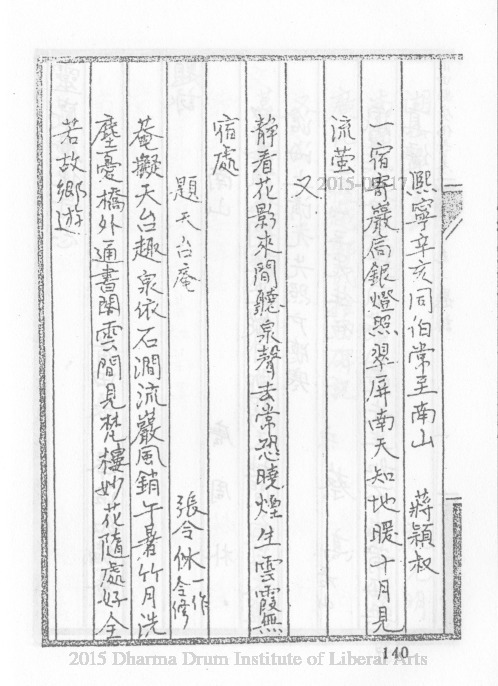 熙寧辛亥同伯常至南山　蔣穎叔
一宿南巖高銀燈照翠屏南天知地暖十月見
流萤
又
靜看花影來閒聽泉聲去常恐曉煙生雲霞無
宿處
題天台庵　張令休一作令修
菴擬天台趣泉依石澗流巖風銷午暑竹月洗
塵憂橋外通書閣雲間見梵樓妙花隨處好全
若故鄉遊
140
2015 Dharma Drum Institute of Liberal Arts